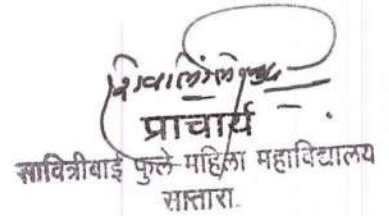 प्राचार्य
सावित्रीबाई फुले महिला महाविद्यालय
सातारा.